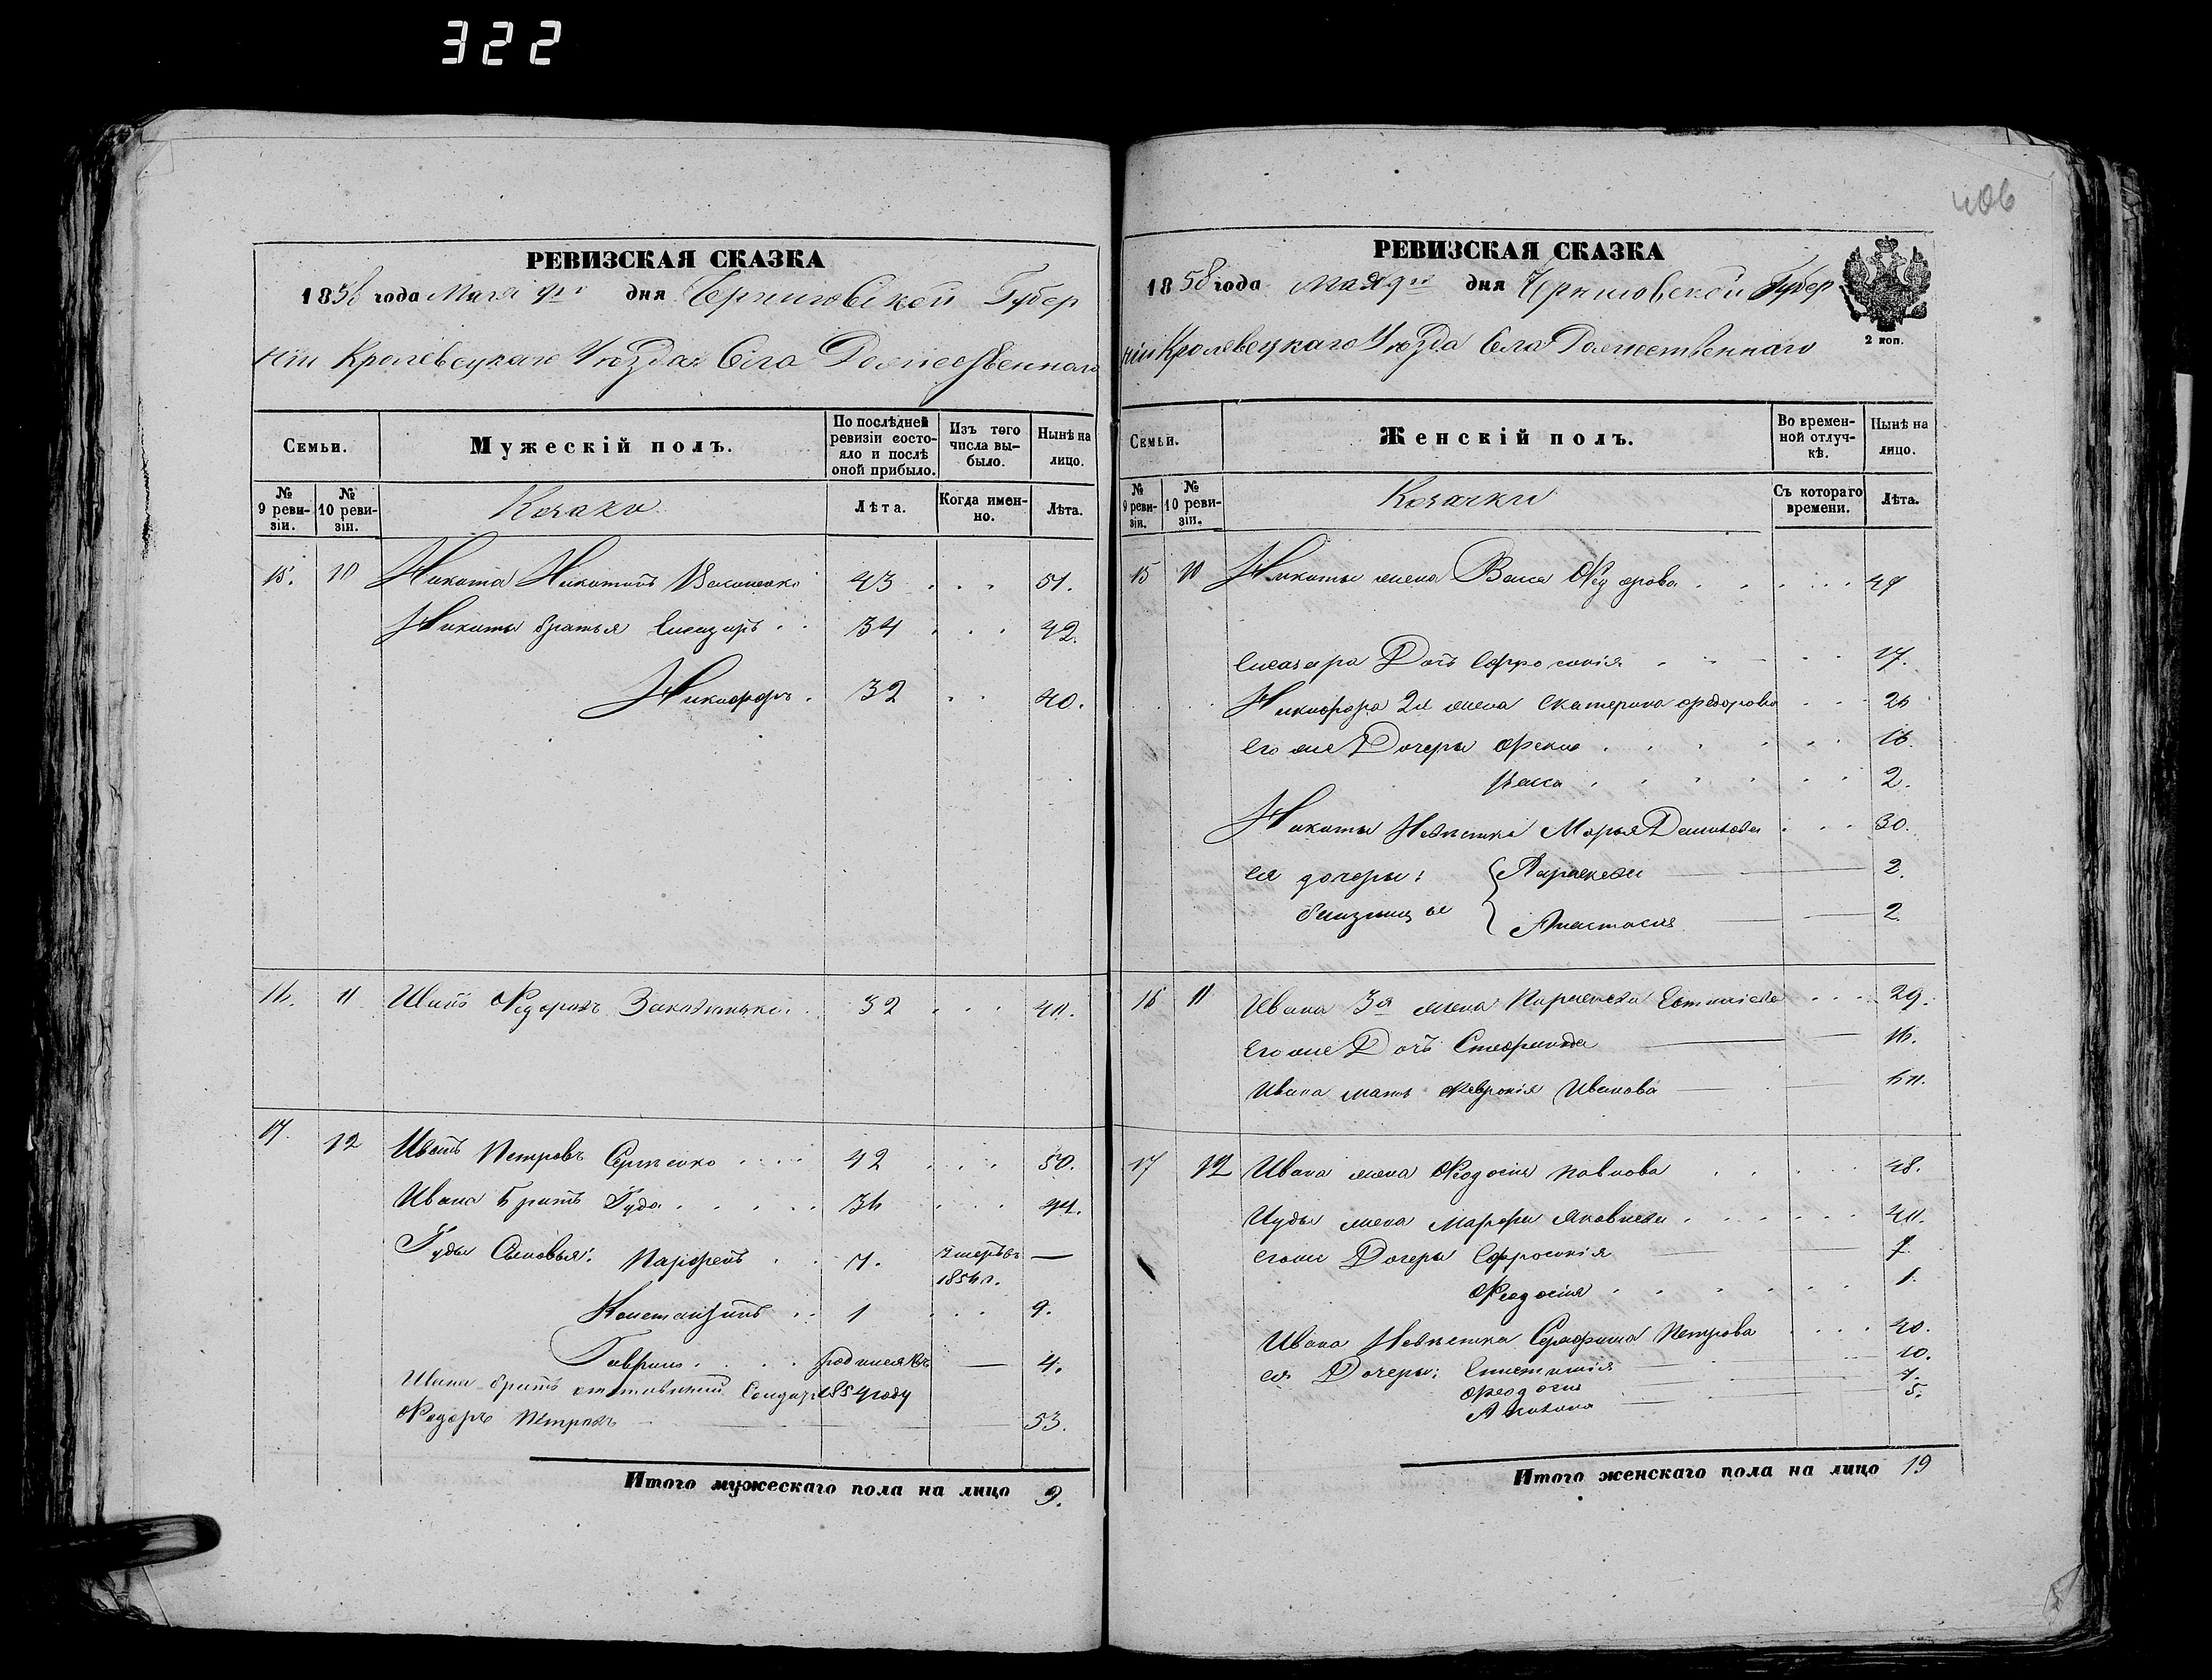 322
406
РЕВИЗСКАЯ СКАЗКА
1858 года Мая 9го дня Черниговской Губер
ніи Кролевецкаго Уѣзда Села Рождественнаго
Семьи.
Мужескій полъ.
По послѣдней ревизіи состояло и послѣ оной прибыло.
Изъ того числа выбыло.
Нынѣ на лицо.
№ 9 ревизіи.
№ 10 ревизіи.
Козаки
Лѣта.
Когда именно.
Лѣта.
15. 10 Никита Никитинъ 43 51.
Никиты братья Елеазаръ 34 42.
Никифоръ 32 40.
16. 11 Иванъ Федоровъ 32 40.
17. 12 Иванъ Петровъ Сергѣенко 42 50.
Ивана братъ Іуда 36 44.
Іуды Сыновья: Парфенъ 7. умеръ въ —
1856 г.
Константинъ 1 9.
Гаврило родился въ — 4.
Ивана братъ отставный Солдатъ 1854 году
Федоръ Петровъ 53.
Итого мужескаго пола на лицо 9.
РЕВИЗСКАЯ СКАЗКА
1858 года Мая 9го дня Черниговской Губер
ніи Кролевецкаго Уѣзда Села Рожественнаго
2 коп.
Семьи.
Женскій полъ.
Во временной отлучкѣ.
Нынѣ на лицо.
№ 9 ревизіи.
№ 10 ревизіи.
Козачки
Съ котораго времени.
Лѣта.
15 10 Никиты жена Васса Федорова 47
Елеазара Дочь Ефросинія 17.
Никифора 2я жена Екатерина Федорова 26
Его же Дочери Фекла 16.
Васса 2.
Никиты Невѣстка Марья 30.
Ея дочери: Параскева 2.
близницы Анастасія 2
16 11 Ивана 3я жена Параскева 29.
Его же Дочь Стефанида 16.
Ивана мать Феврония Иванова 60.
17 12 Ивана жена Феодосия Павлова 48.
Иуды жена Марфа Яковлева 40.
его же Дочери Ефросинія 7
Феодосия 1.
Ивана Невѣстка Серафима Петрова 40.
ея Дочери: 10.
Феодосия 7.
5.
Итого женскаго пола на лицо 19